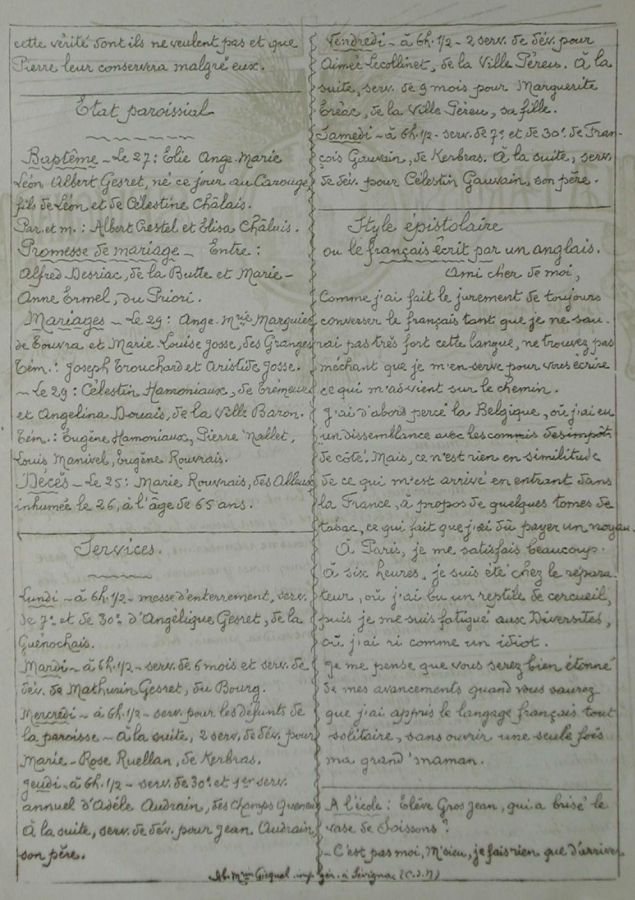 cette vérité dont ils ne veulent pas et que
Pierre leur conservera malgré eux.
Etat paroissial
Baptême - Le 27 : Élie Ange-Marie
Léon Albert Gesret, né ce jour au Carouge,
fils de Léon et de Célestine Châlais.
Par. et m. : Albert Restel et Elisa Châluis.
Promesse de mariage - Entre :
Alfred Desriac, de la Butte et Marie-
Anne Ermel, du Priori.
Mariages - Le 29 : Ange-Mrie Marguier
de Couvra et Marie Louise Josse, des Granges
Tém. : Joseph Trouchard et Aristide Josse.
- Le 29 : Célestin Hamoniaux, de Crémeur
et Angelina Douais, de la Ville Baron.
Tém. : Eugène Hamoniaux, Pierre Nallet,
Louis Manivel, Eugène Rouvrais.
Décès - Le 25 : Marie Rouvrais, des Alleux
inhumée le 26, à l'âge de 65 ans.
Services.
Lundi - à 6h.1/2 - messe d'enterrement, serv.
de 7e et de 30e d'Angélique Gesret, de la
Guenochais.
Mardi - à 6h.1/2 - serv. de 6 mois et serv. de
dév. de Mathurin Gesret, du Bourg.
Mercredi - à 6h.1/2 - serv. pour les défunts de
la paroisse - à la suite, 2 serv. de dév. pour
Marie-Rose Ruellan, de Kerbras.
Jeudi - à 6h.1/2 - serv. de 30e et 1er serv.
annuel d'Adèle Audrain, des Champs
À la suite, serv. de dév. pour Jean Audrain,
son père.
Vendredi - à 6h.1/2 - 2 serv. de dév. pour
Aimée Lecollinet, de la Ville Péreu. À la
suite, serv. de 9 mois pour Marguerite
Eréac, de la Ville Péreu, sa fille.
Samedi - à 6h.1/2 - serv. de 7e et de 30e de Fran-
çois Gauvain, de Kerbras. À la suite, serv.
de dév. pour Célestin Gauvain, son père.
Style épistolaire
ou le français écrit par un anglais.
Ami cher de moi,
Comme j'ai fait le jurement de toujours
converser le français tant que je ne sau-
rai pas très fort cette langue, ne trouvez pas
méchant que je m'en serve pour vous écrire
ce qui m'advient sur le chemin.
J'ai d'abord percé la Belgique, où j'ai eu
un dissemblance avec les commis des impôt
de côté. Mais, ce n'est rien en similitude
de ce qui m'est arrivé en entrant dans
la France, à propos de quelques tomes de
tabac, ce qui fait que j'ai dû payer un noyau.
À Paris, je me satisfais beaucoup.
À six heures, je suis été chez le répara-
teur, où j'ai bu un reptile de cercueil,
puis je me suis fatigué aux Diversités,
où j'ai ri comme un idiot.
Je me pense que vous serez bien étonné
de mes avancements quand vous saurez
que j'ai appris le langage français tout
solitaire, sans ouvrir une seule fois
ma grand'maman.
A l'école : Élève Gros Jean, qui a brisé le
vase de Soissons ?
- C'est pas moi, M'sieu, je fais rien que d'arriver
Ab. Gicquel imp. gér. à Sévignac (C.d.N)